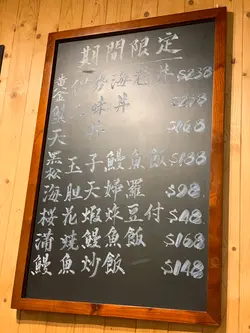 期間限定
伊勢海老丼 $238
金 味丼
天 丼 $168
黑松玉子鰻魚飯 $138
海胆天婦羅 $98
桜花蝦 豆付 $48
蒲燒鰻魚飯 $168
鰻魚炒飯 $148